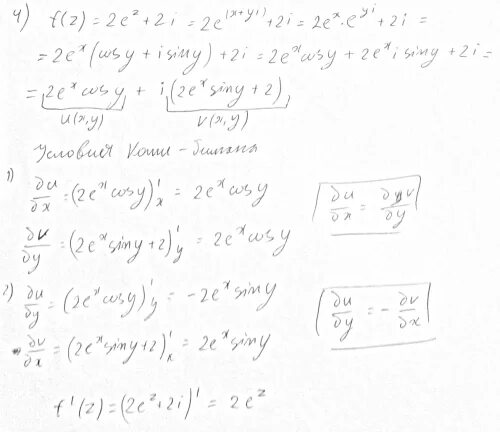 4) f(z) = 2e^z + 2i = 2e^(x+yi) + 2i = 2e^x · e^yi + 2i =
= 2e^x (cosy + i siny) + 2i = 2e^x cosy + 2e^x i siny + 2i =
= 2e^x cosy + i (2e^x siny + 2)
u(x,y) v(x,y)
Условия Коши - Римана
1) ∂u/∂x = (2e^x cosy)'x = 2e^x cosy
∂v/∂y = (2e^x siny + 2)'y = 2e^x cosy
∂u/∂x = ∂v/∂y
2) ∂u/∂y = (2e^x cosy)'y = -2e^x siny
∂v/∂x = (2e^x siny + 2)'x = 2e^x siny
∂u/∂y = - ∂v/∂x
f'(z) = (2e^z + 2i)' = 2e^z